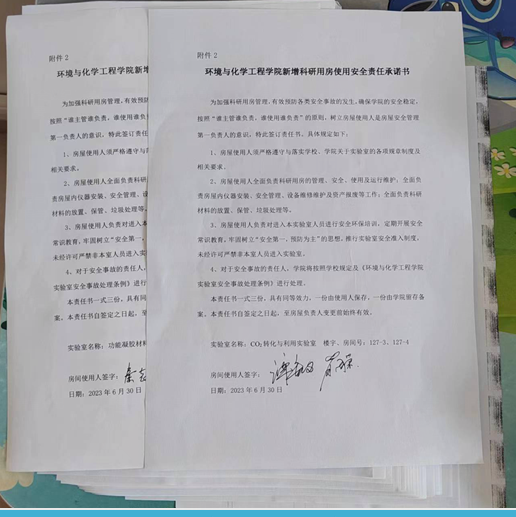 附件 2
环境与化学工程学院新增
为加强科研用房管理,有效预防
按照“谁主管谁负责,谁使用谁负
第一负责人的意识,特此签订责任
1、房屋使用人须严格遵守与
相关要求。
2、房屋使用人全面负责科研
责房屋内仪器安装、安全管理、设
材料的放置、保管、垃圾处理等。
3、房屋使用人负责对进入本
常识教育,牢固树立“安全第一、
未经许可严禁非本室人员进入实
4、对于安全事故的责任人,
实验室安全事故处理条例》进行处
本责任书一式三份,具有同
案。本责任书自签定之日起,至房
实验室名称:功能凝胶材料
房间使用人签字:
日期:2023 年 6 月 30 日
附件 2
环境与化学工程学院新增科研用房使用安全责任承诺书
为加强科研用房管理,有效预防各类安全事故的发生,确保学院的安全稳定,
按照“谁主管谁负责,谁使用谁负责”的原则,树立房屋使用人是房屋安全管理
第一负责人的意识,特此签订责任书。具体规定如下:
1、房屋使用人须严格遵守与落实学校、学院关于实验室的各项规章制度及
相关要求。
2、房屋使用人全面负责科研用房的管理、安全、使用及运行维护。全面负
责房屋内仪器安装、安全管理、设备维修维护及资产报废等工作;全面负责科研
材料的放置、保管、垃圾处理等。
3、房屋使用人负责对进入本实验室人员进行安全环保培训,定期开展安全
常识教育,牢固树立“安全第一、预防为主”的思想,推行实验室安全准入制度,
未经许可严禁非本室人员进入实验室。
4、对于安全事故的责任人,学院将按照学校规定及《环境与化学工程学院
实验室安全事故处理条例》进行处理。
本责任书一式三份,具有同等效力,一份由使用人保存,一份由学院留存备
案。本责任书自签定之日起,至房屋负责人变更前始终有效。
实验室名称:CO₂ 转化与利用实验室 楼宇、房间号:127-3、127-4
房间使用人签字:
日期:2023 年 6 月 30 日